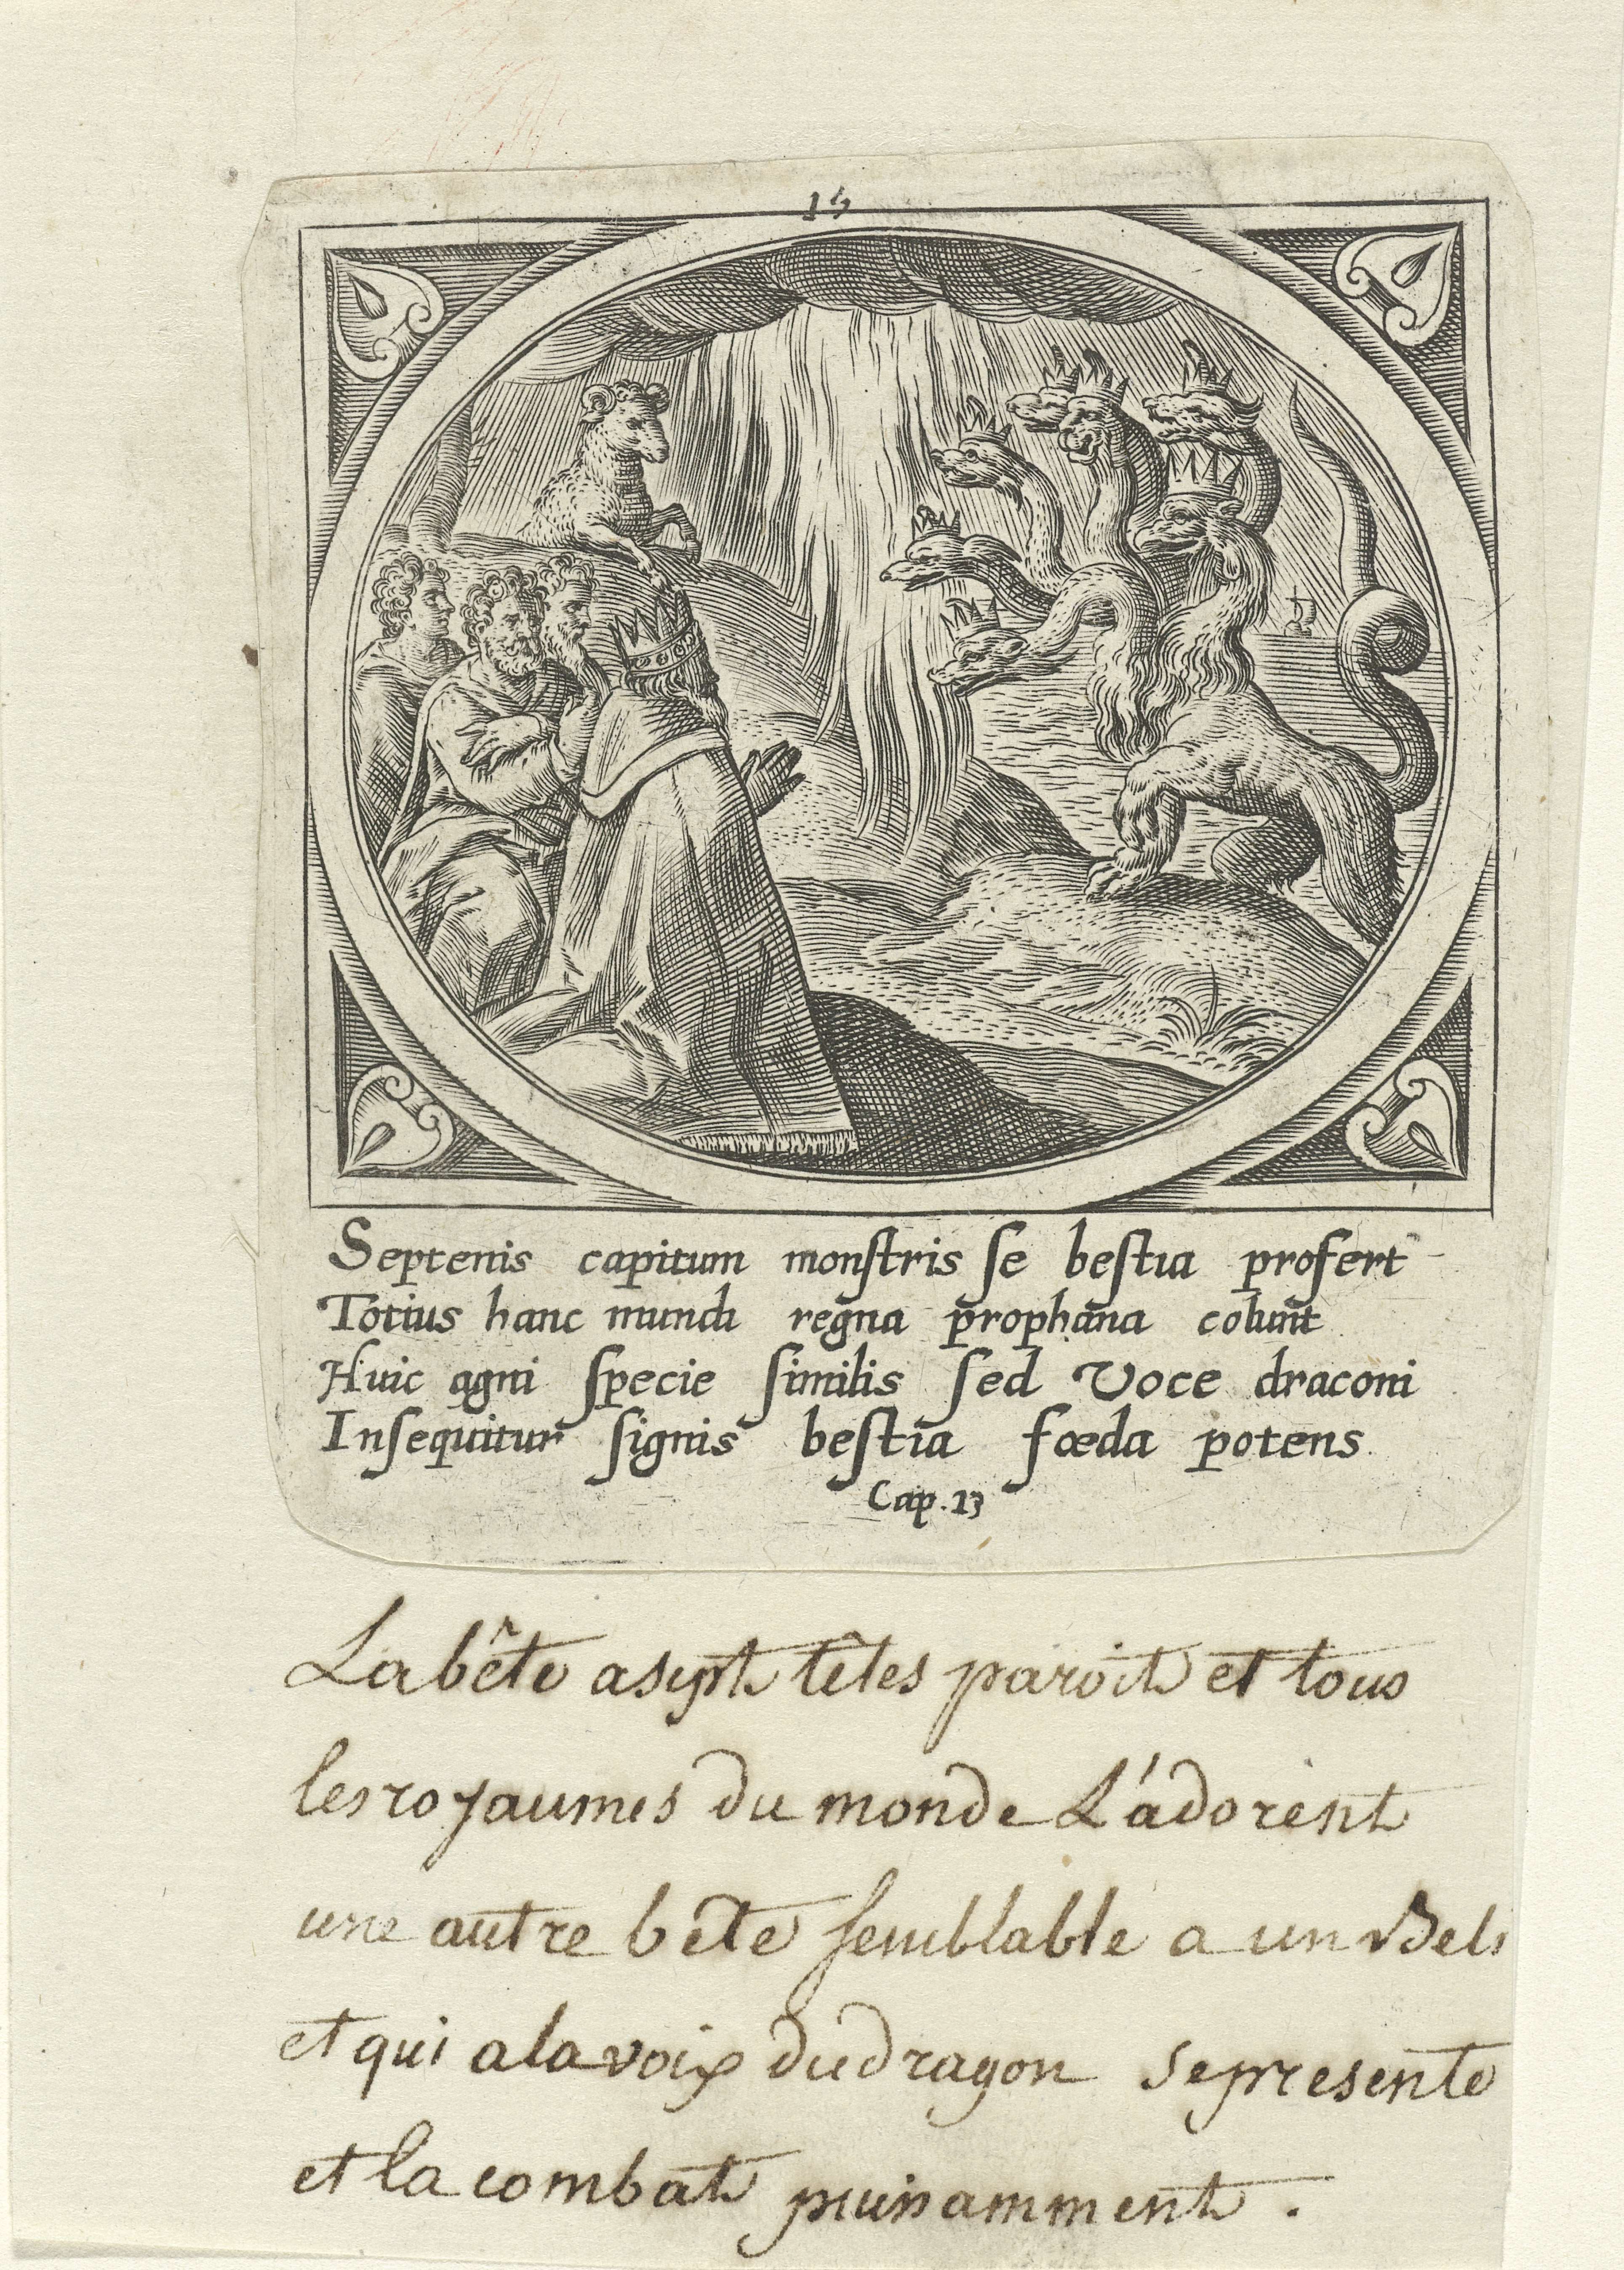 15
Septenis capitum monſtris ſe beſtia profert
Totius hanc mundi regna prophana colunt
Huic agni ſpecie ſimilis ſed Voce draconi
Inſequitur ſignis beſtia fœda potens.
Cap. 13
La bête a sept têtes paroit et tous
les royaumes du monde L'adorent
une autre bête ſemblable a un
et qui a la voix du dragon se presente
et la combat puissamment.